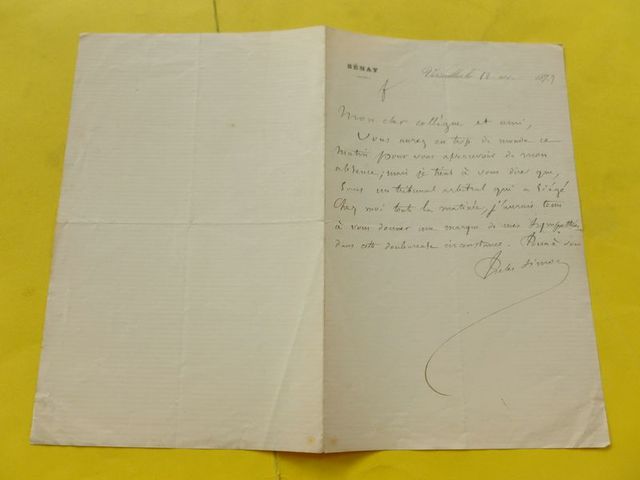 SÉNAT
Versailles le 12 1879
Mon cher collègue et ami,
Vous aurez eu trop de monde ce
matin pour vous apercevoir de mon
absence; mais je tiens à vous dire que,
sans un tribunal arbitral qui a siégé
chez moi tout la matinée, j'aurais tenu
à vous donner une marque de mes sympathies
dans cette douloureuse circonstance. Bien à vous
Jules Simon